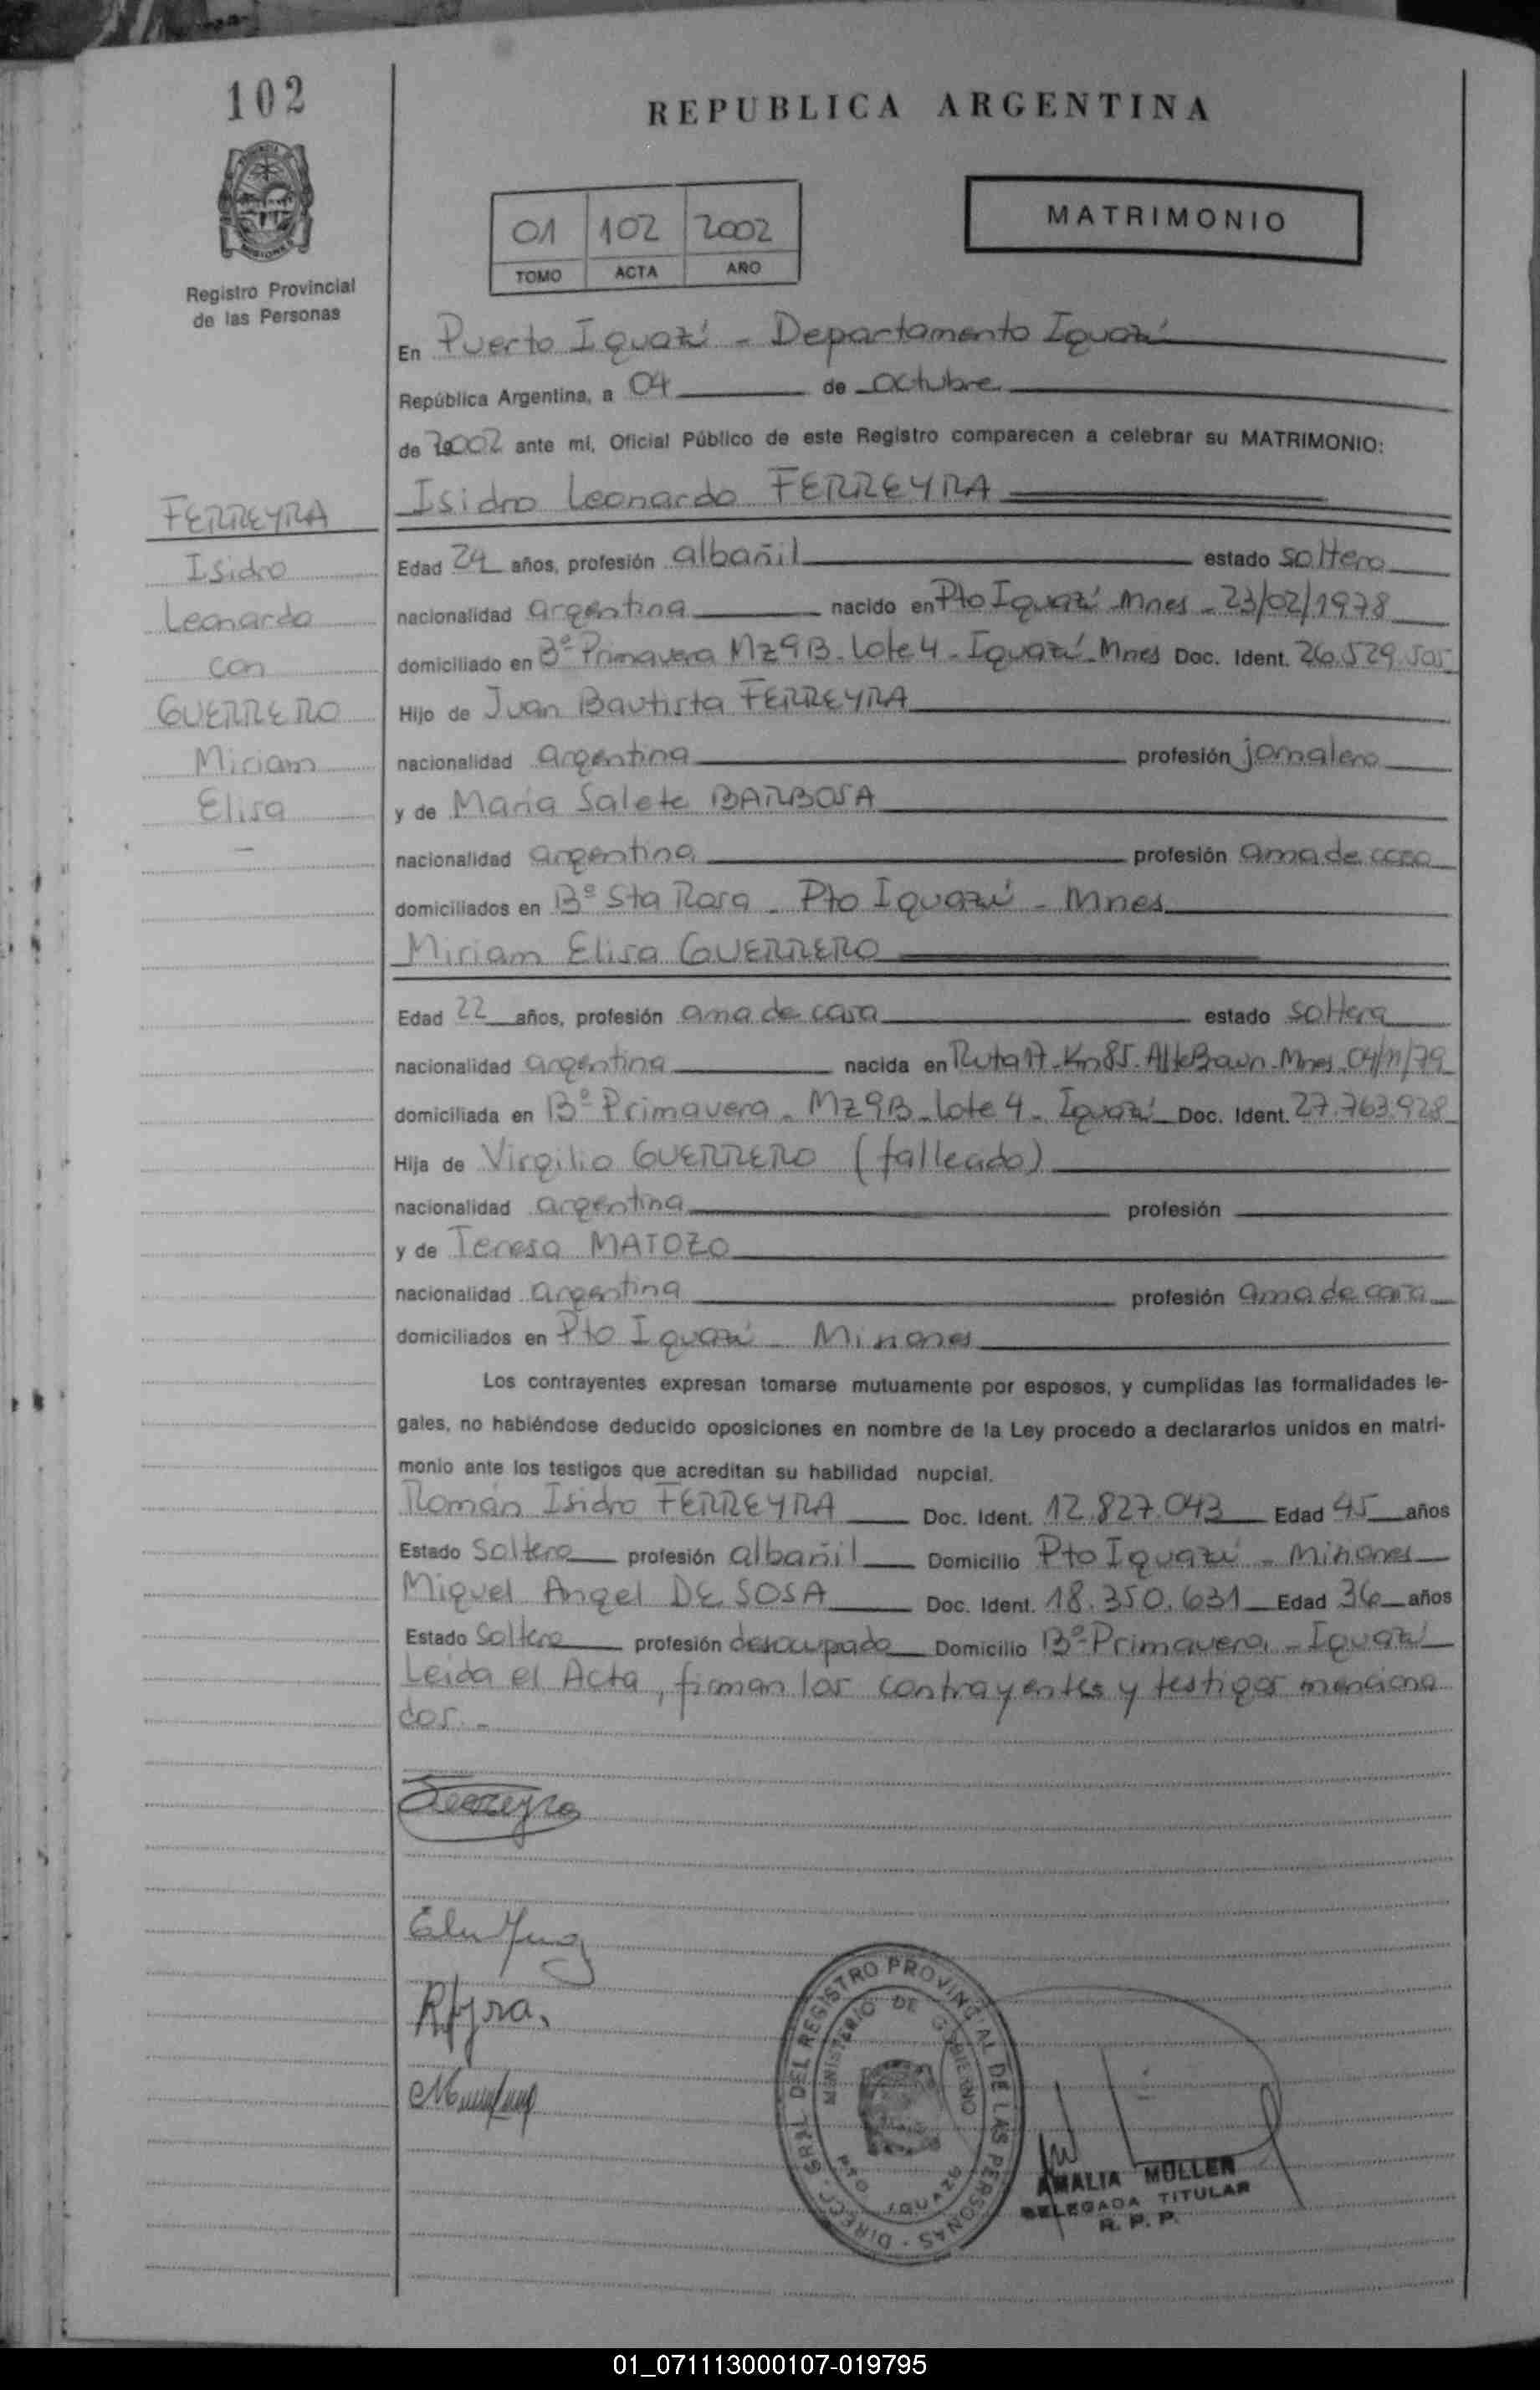 102
REPUBLICA ARGENTINA
01 102 2002
TOMO ACTA AÑO
MATRIMONIO
Registro Provincial
de las Personas
En Puerto Iguazú - Departamento Iguazú
República Argentina, a 04 de octubre
de 2002 ante mí, Oficial Público de este Registro comparecen a celebrar su MATRIMONIO:
Isidro Leonardo FERREYRA
FERREYRA
Isidro
Leonardo
con
GUERRERO
Miriam
Elisa
-
Edad 24 años, profesión albañil estado soltero
nacionalidad argentina nacido en Pto Iguazú Mnes - 23/02/1978
domiciliado en Bº Primavera Mz 9B - Lote 4 - Iguazú - Mnes Doc. Ident. 26.529.505
Hijo de Juan Bautista FERREYRA
nacionalidad argentina profesión jornalero
y de Maria Salete BARBOSA
nacionalidad argentina profesión ama de casa
domiciliados en Bº Sta Rosa - Pto Iguazú - Mnes
Miriam Elisa GUERRERO
Edad 22 años, profesión ama de casa estado soltera
nacionalidad argentina nacida en Ruta 17 - Km 85 - Mnes - 04/11/79
domiciliada en Bº Primavera - Mz 9B - Lote 4 - Iguazú Doc. Ident. 27.763.928
Hija de Virgilio GUERRERO (fallecido)
nacionalidad argentina profesión
y de Teresa MATOZO
nacionalidad argentina profesión ama de casa
domiciliados en Pto Iguazú - Misiones
Los contrayentes expresan tomarse mutuamente por esposos, y cumplidas las formalidades le-
gales, no habiéndose deducido oposiciones en nombre de la Ley procedo a declararlos unidos en matri-
monio ante los testigos que acreditan su habilidad nupcial.
Román Isidro FERREYRA Doc. Ident. 12.827.043 Edad 45 años
Estado Soltero profesión albañil Domicilio Pto Iguazú - Misiones
Miguel Angel DE SOSA Doc. Ident. 18.350.631 Edad 36 años
Estado Soltero profesión desocupado Domicilio Bº Primavera - Iguazú
Leida el Acta, firman los contrayentes y testigos menciona
dos.-
Ferreyra
DIRECC. GRAL. DEL REGISTRO PROVINCIAL DE LAS PERSONAS
MINISTERIO DE GOBIERNO
PTO IGUAZU
AMALIA MULLER
DELEGADA TITULAR
R. P. P.
01_071113000107-019795